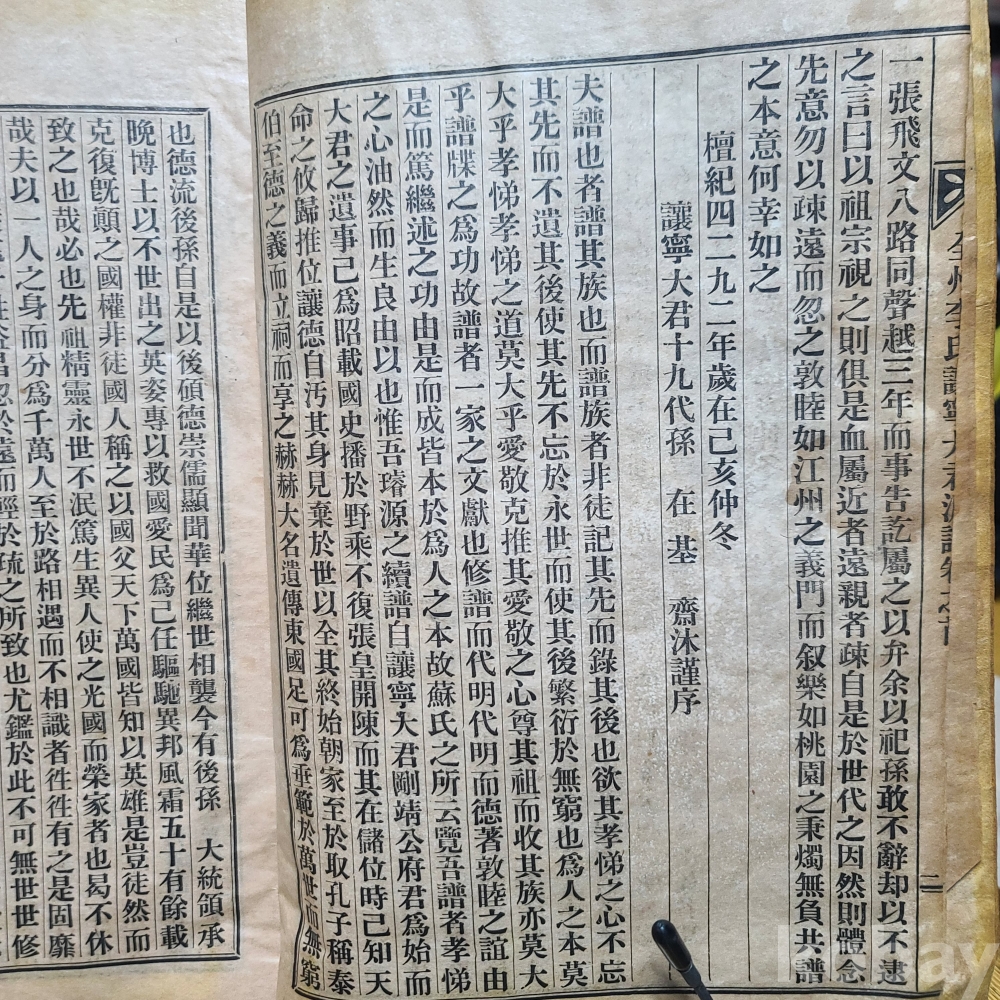 一張飛文八路同聲越三年而事告訖屬之以弁余以祀孫敢不辭却以不逮
之言曰以祖宗視之則俱是血屬近者遠親者疎自是於世代之因然則體念
先意勿以疎遠而忽之敦睦如江州之義門而叙樂如桃園之秉燭無負共譜
之本意何幸如之
檀紀四二九二年歲在己亥仲冬
讓寧大君十九代孫 在基 齋沐謹序
夫譜也者譜其族也而譜族者非徒記其先而錄其後也欲其孝悌之心不忘
其先而不遺其後使其先不忘於永世而使其後繁衍於無窮也爲人之本莫
大乎孝悌孝悌之道莫大乎愛敬克推其愛敬之心尊其祖而收其族亦莫大
乎譜牒之爲功故譜者一家之文獻也修譜而代明代明而德著敦睦之誼由
是而篤繼述之功由是而成皆本於爲人之本故蘇氏之所云覽吾譜者孝悌
之心油然而生良由以也惟吾璿源之續譜自讓寧大君剛靖公府君爲始而
大君之遺事已爲昭載國史播於野乘不復張皇開陳而其在儲位時已知天
命之攸歸推位讓德自汚其身見棄於世以全其終始朝家至於取孔子稱泰
伯至德之義而立祠而享之赫赫大名遺傳東國足可爲垂範於萬世而無窮
也德流後孫自是以後碩德崇儒顯聞華位繼世相襲今有後孫 大統領承
晩博士以不世出之英姿專以救國愛民爲己任驅馳異邦風霜五十有餘載
克復旣顚之國權非徒國人稱之以國父天下萬國皆知以英雄是豈徒然而
致之也哉必也先祖精靈永世不泯篤生異人使之光國而榮家者也曷不休
哉夫以一人之身而分爲千萬人至於路相遇而不相識者徃徃有之是固靡
忽於遠而輕於疏之所致也尤鑑於此不可無世世修
全州李氏讓寧大君派譜卷之首
二